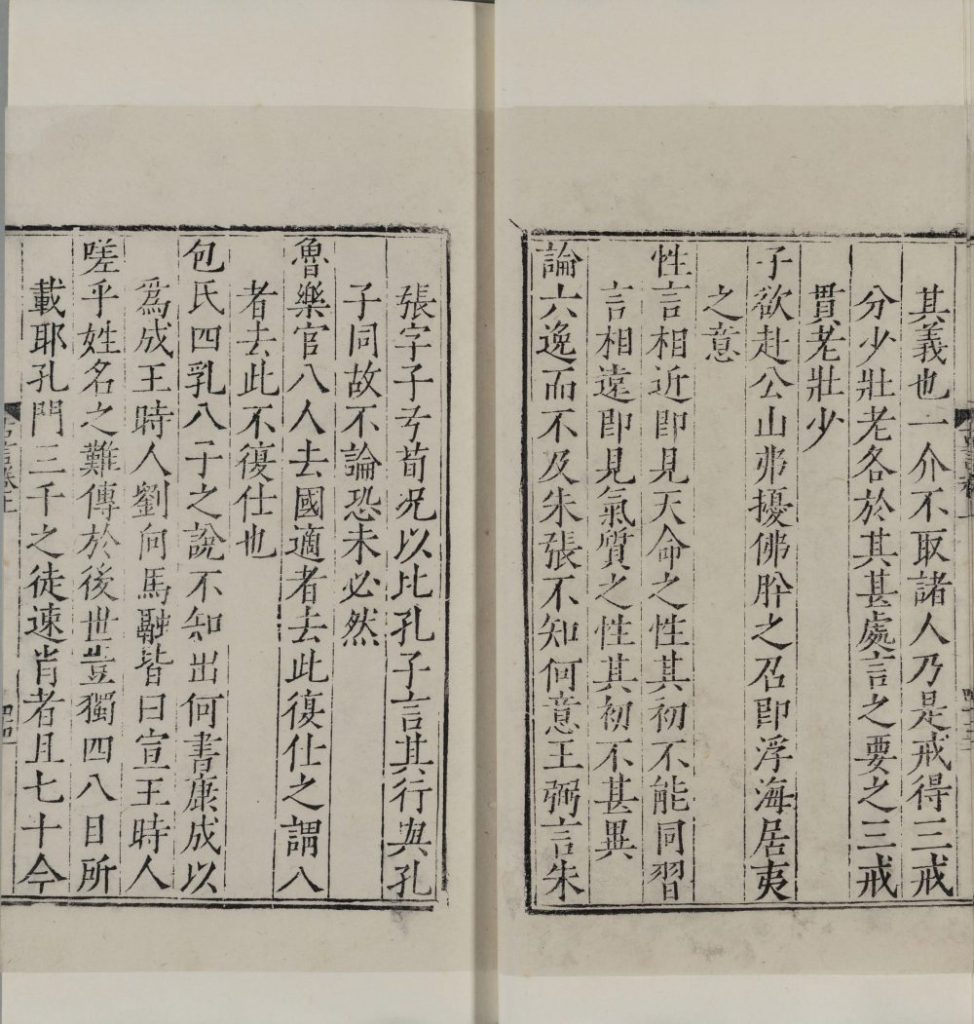 其義也一介不取諸人乃是戒得三戒
分少壯老各於其甚處言之要之三戒
貫老壯少
子欲赴公山弗擾佛肸之召即浮海居夷
之意
性言相近即見天命之性其初不能同習
言相遠即見氣質之性其初不甚異
論六逸而不及朱張不知何意王弼言朱
張字子弓荀况以比孔子言其行與孔
子同故不論恐未必然
魯樂官八人去國適者去此復仕之謂八
者去此不復仕也
包氏四乳八子之說不知出何書康成以
爲成王時人劉向馬融皆曰宣王時人
嗟乎姓名之難傳於後世豈獨四八目所
載耶孔門三千之徒速肖者且七十今